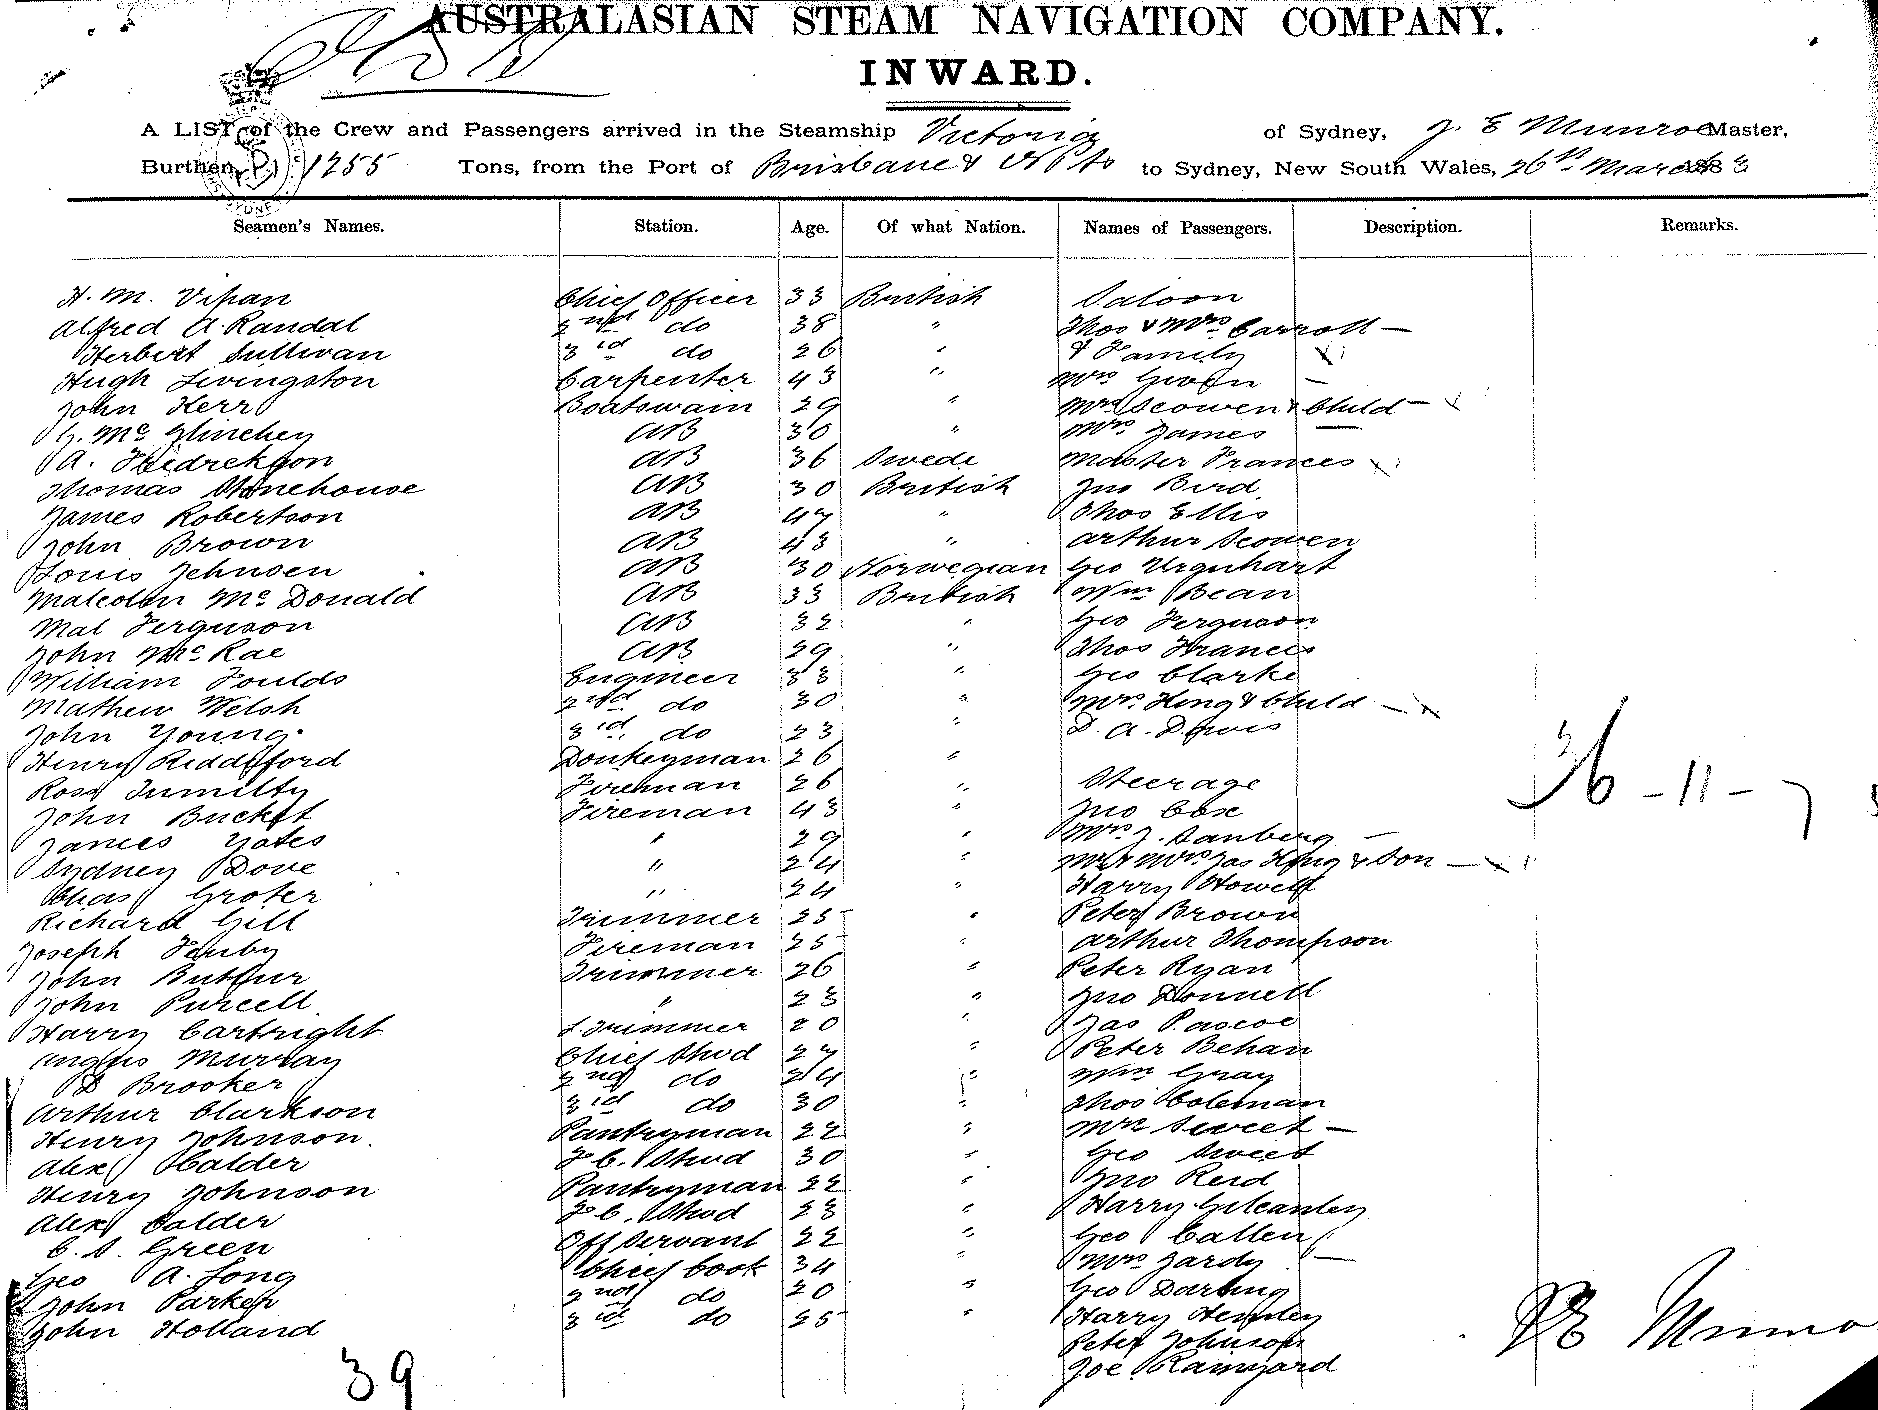 AUSTRALASIAN STEAM NAVIGATION COMPANY.
INWARD.
A LIST of the Crew and Passengers arrived in the Steamship Victoria of Sydney, J. E Munroe Master,
Burthen, 1255 Tons, from the Port of Brisbane & to Sydney, New South Wales, 26th March 1883
Seamen's Names. Station. Age. Of what Nation. Names of Passengers. Description. Remarks.
H. M. Vipan Chief Officer 33 British Saloon
Alfred A. Randal 2nd do 38 " Thos & Mrs Carroll —
Herbert Sullivan 3rd do 26 " & Family
Hugh Livingston Carpenter 43 " Mrs Gwen —
John Kerr Boatswain 29 " Mrs Scowen & Child —
G. Mc Glinchey AB 30 " Mrs James —
A. AB 36 Swede Master Frances
Thomas Stonehouse AB 30 British Jno Bird
James Robertson AB 47 " Thos Ellis
John Brown AB 43 " Arthur Scowen
Louis Johnsen AB 30 Norwegian Geo Urquhart
Malcolm Mc Donald AB 33 British Wm Bean
Mal Ferguson AB 32 " Geo Ferguson
John McRae AB 29 " Thos Francis
William Foulds Engineer 33 " Geo Clarke
Mathew Welsh 2nd do 30 " Mrs King & Child —
John Young 3rd do 23 " D. A. Dowis
Henry Riddiford Donkeyman 26 "
Ross Tumilty Fireman 26 " Steerage
John Bucket Fireman 43 " Jno Cox
James Yates " 29 " Mrs J. Sanberg —
Sydney Dove " 24 " Mr & Mrs Jas King & Son —
Chas Groter " 24 " Harry Howell
Richard Gill Trimmer 25 " Peter Brown
Joseph Fenby Fireman 25 " Arthur Thompson
John Butler Trimmer 26 " Peter Ryan
John Purcell " 23 " Jno Donnell
Harry Cartright Trimmer 20 " Jas Pascoe
Angus Murray Chief Stwd 27 " Peter Behan
D Brooker 2nd do 24 " Wm Gray
Arthur Clarkson 3rd do 30 " Thos Coleman
Henry Johnson Pantryman 22 " Mrs Sweet —
Alex Calder F. C. Stwd 30 " Geo Sweet
Henry Johnson Pantryman 22 " Jno Reid
Alex Calder F. C. Stwd 23 " Harry
C. S. Green Off Servant 22 " Geo Callen
Geo A. Long Chief Cook 34 " Mrs Zardy —
John Parker 2nd do 20 " Geo Darling
John Holland 3rd do 25 " Harry Hemley
Peter Johnson
Joe Rainyard
39
36 - 11 - 7
J E Munro